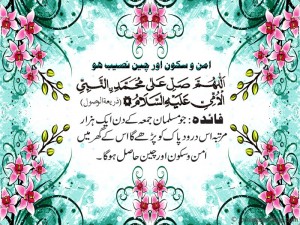 امن و سکون اور چین نصیب ہو
اَللّٰهُمَّ صَلِّ عَلٰی مُحَمَّدِنِ النَّبِیِّ
الْاُمِّیِّ عَلَیْهِ السَّلَامُ (ذریعۃ الوصول)
فائدہ: جو مسلمان جمعہ کے دن ایک ہزار
مرتبہ اس درود پاک کو پڑھے گا اس کے گھر میں
امن و سکون اور چین حاصل ہوگا۔